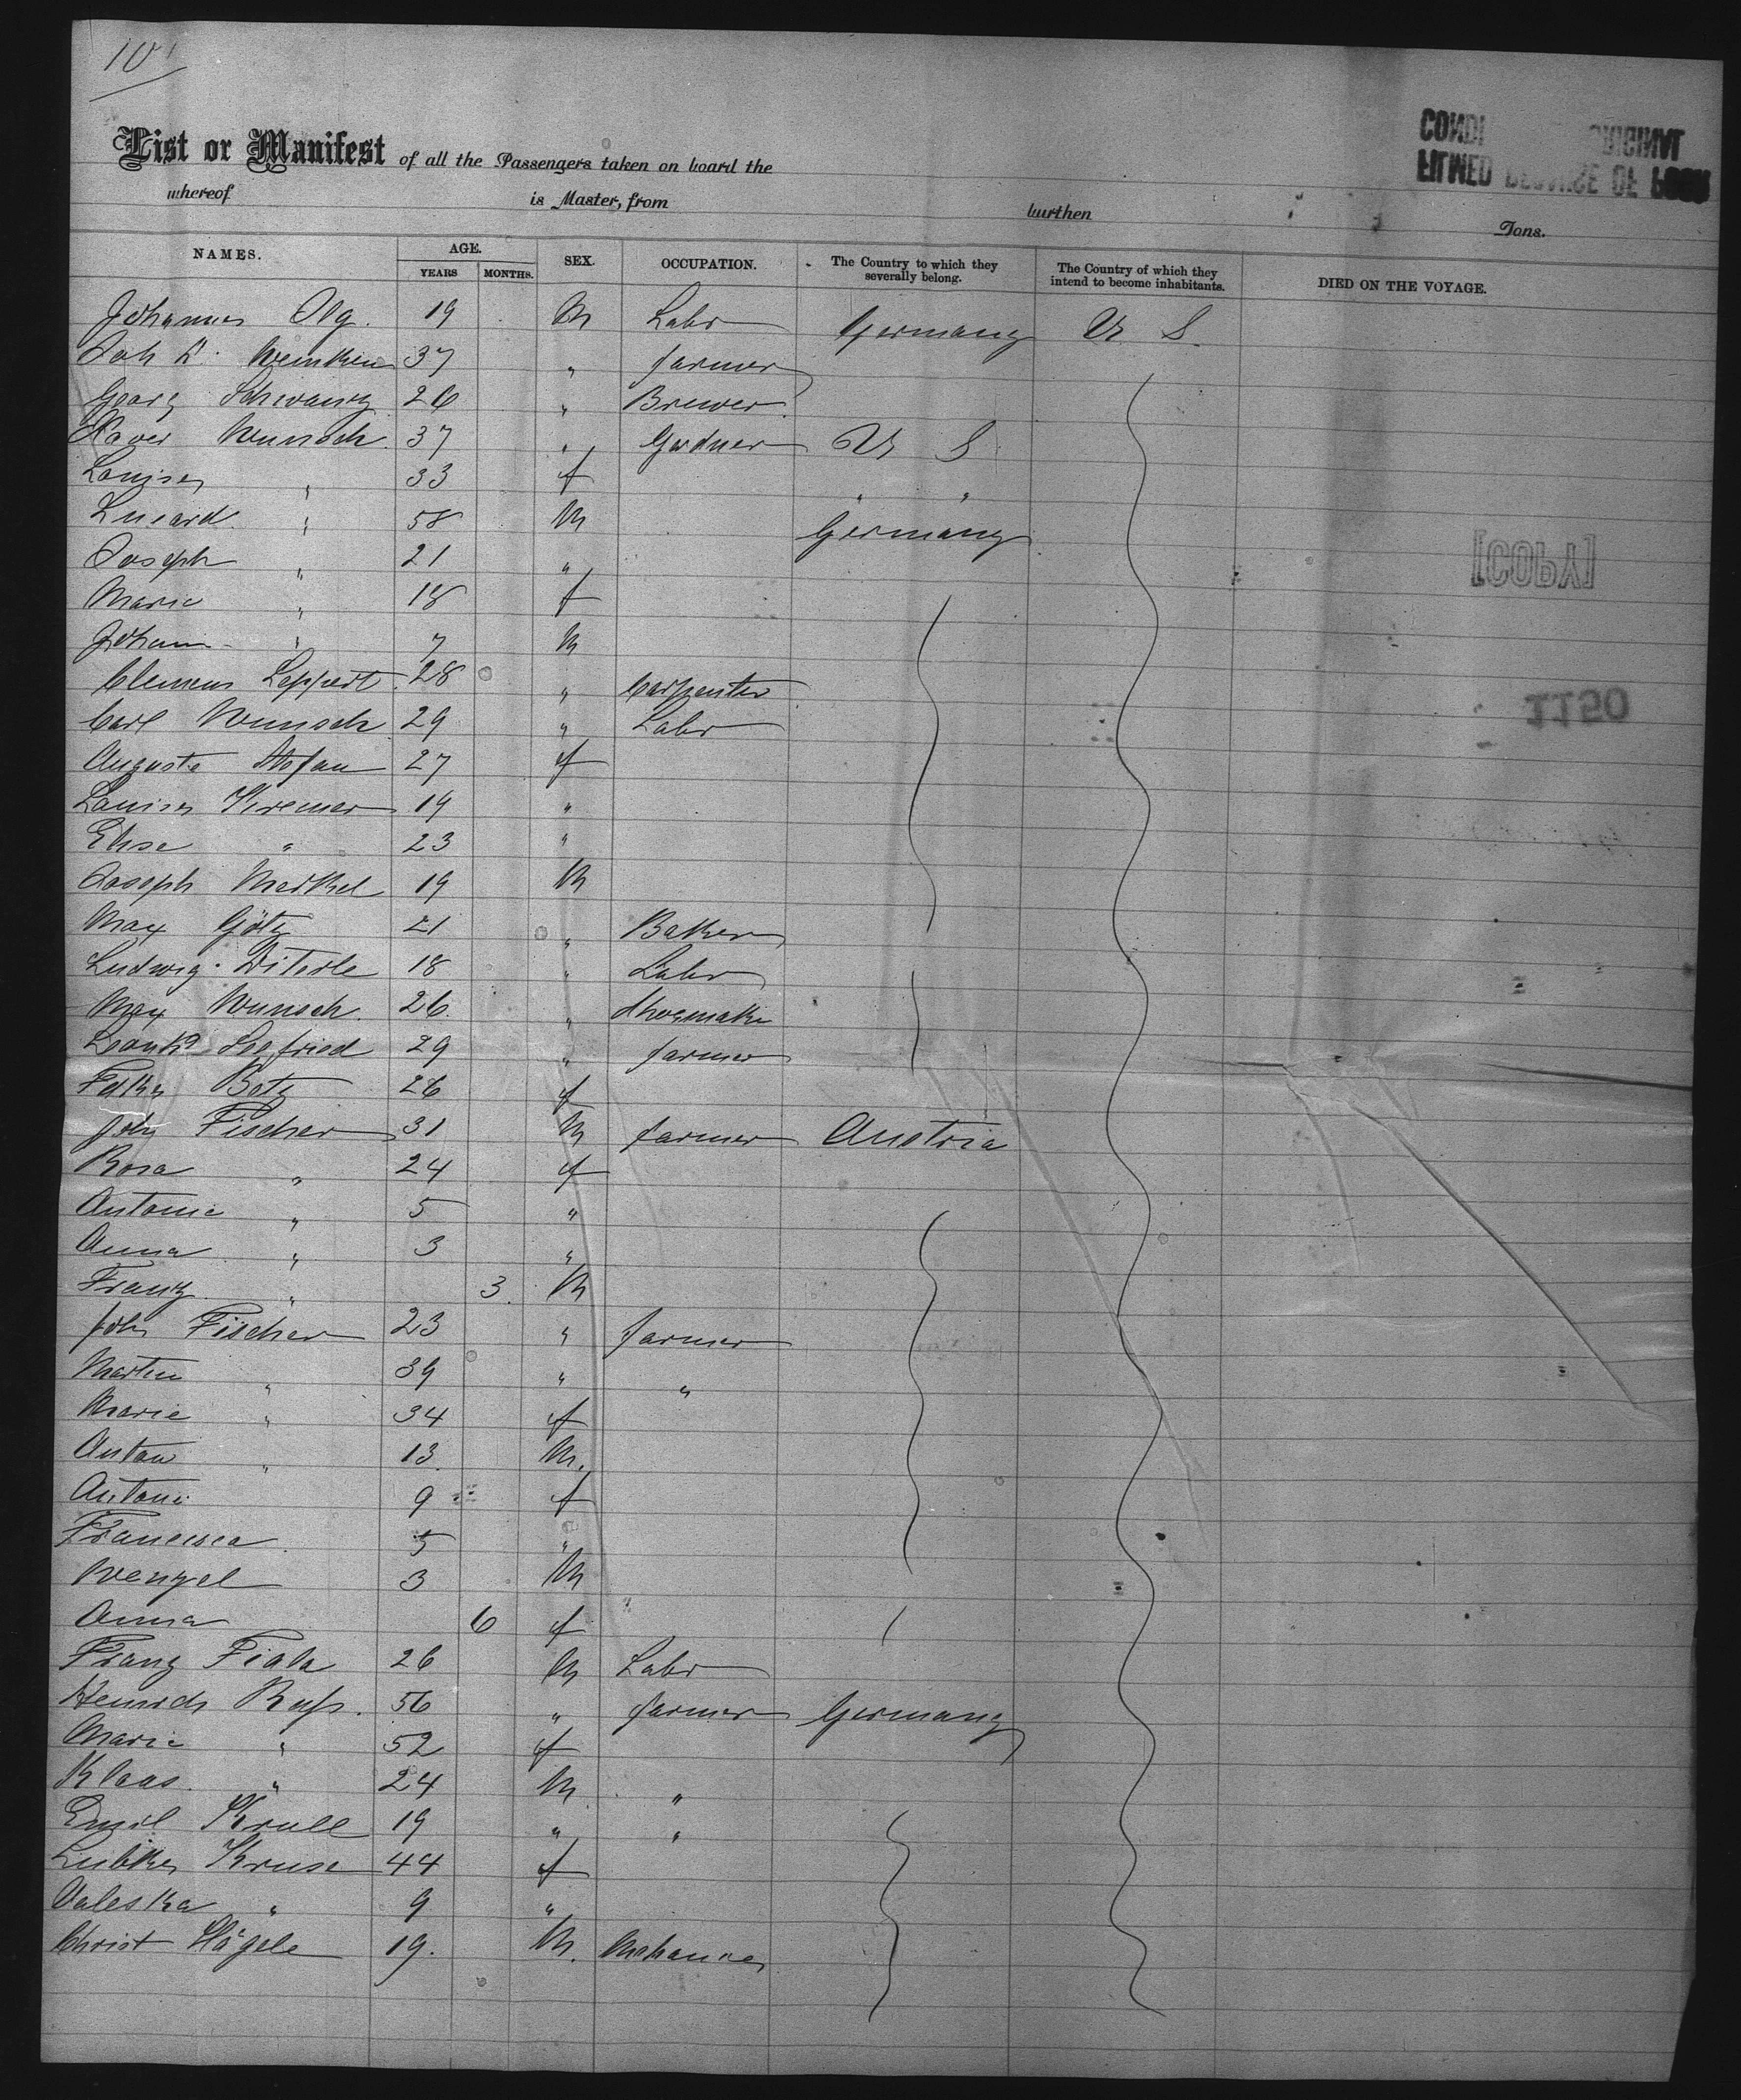 10
List or Manifest of all the Passengers taken on board the
whereof is Master, from burthen Tons.
NAMES. AGE. YEARS MONTHS. SEX. OCCUPATION. The Country to which they severally belong. The Country of which they intend to become inhabitants. DIED ON THE VOYAGE.
Johannes 19 M Labr Germany U S
Joh 37 " farmer
Georg Schwarz 26 " Brewer
Xaver Wunsch 37 " Gardner U S
Louise " 33 f " "
" 58 M Germany
Joseph " 21 "
Marie " 18 f
Johann " 7 M
Clemens Leppert 28 " Carpenter
Carl Wunsch 29 " Labr
Auguste Stefan 27 f
Louise Kremer 19 "
Elise " 23 "
Joseph Merkel 19 M
Max Götz 21 " Baker
Ludwig Diterle 18 " Labr
Max Wunsch 26 " Shoemaker
Seefried 29 " farmer
Betz 26 f
John Fischer 31 M farmer Austria
Rosa " 24 f
Antonie " 5 "
Anna " 3 "
Franz " 3 M
John Fischer 23 " farmer
Martin " 39 " "
Marie " 34 f
Anton " 13 M.
Antoni 9 f
Francisca 5 "
Wenzel 3 M
Anna 6 f
Franz Fiala 26 M Labr
Heinrich 56 " farmer Germany
Marie " 52 f
Klaas " 24 M "
Emil Krull 19 " "
Lubke Kruse 44 f
Valeska " 9 "
Christ Hägele 19. M. Mechanic
[COPY]
1150